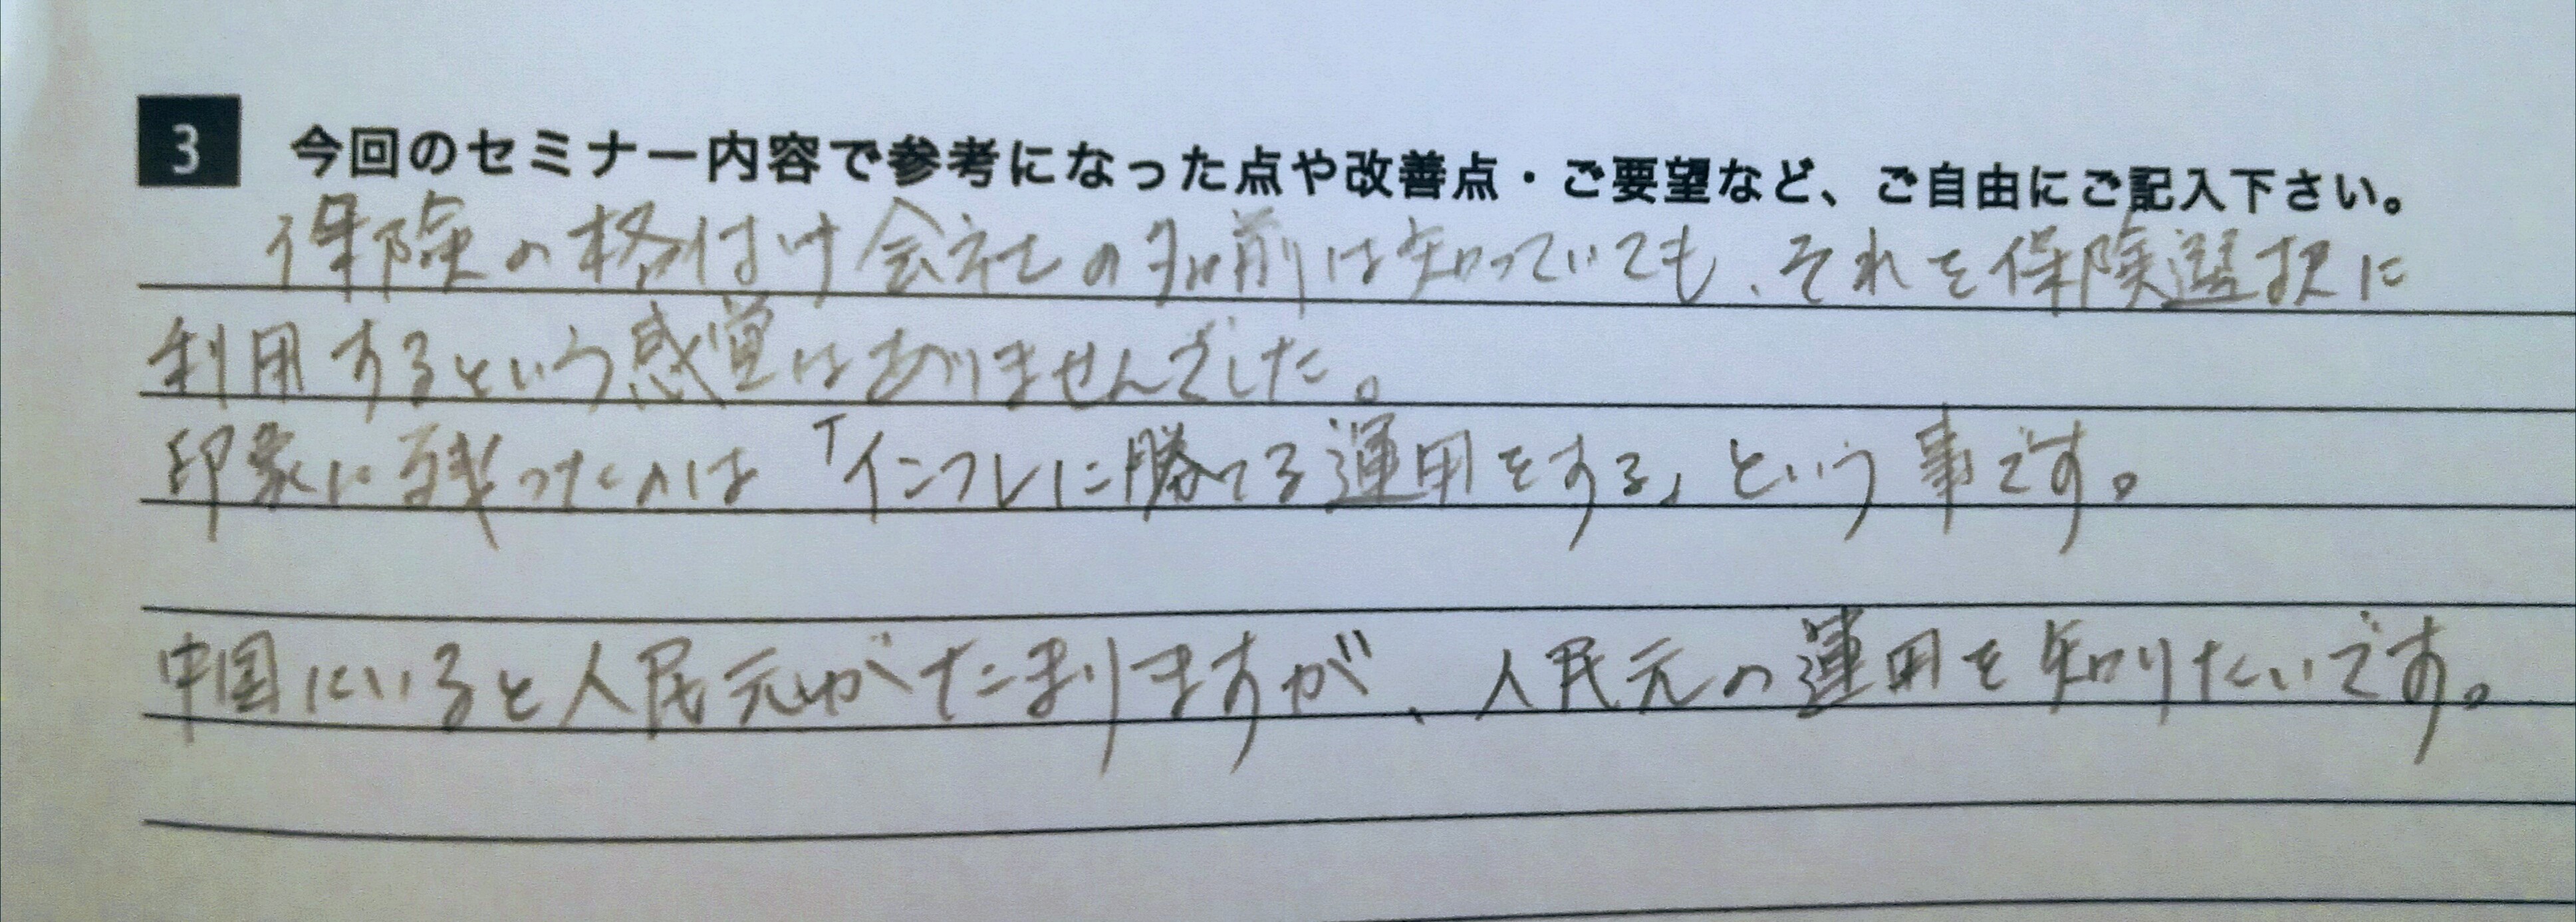 3 今回のセミナー内容で参考になった点や改善点・ご要望など、ご自由にご記入下さい。
保険の格付け会社の名前は知っていても、それを保険選択に
利用するという感覚はありませんでした。
印象に残ったのは「インフレに勝てる運用をする」という事です。
中国にいると人民元がたまりますが、人民元の運用を知りたいです。